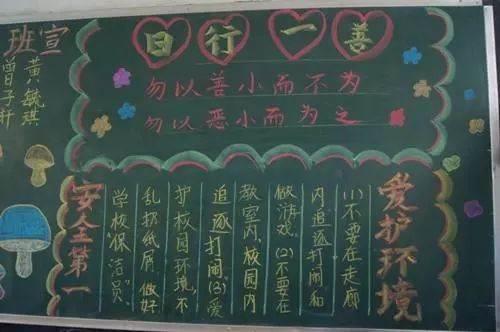 班宣
黄毓琪
曾子轩
日行一善
勿以善小而不为
勿以恶小而为之
爱护环境
(1)不要在走廊
内追逐打闹和
做游戏。(2)不要在
教室内、校园内
追逐打闹。(3)爱
护校园环境,不
乱扔纸屑,做好
学校“保洁员”。
安全第一